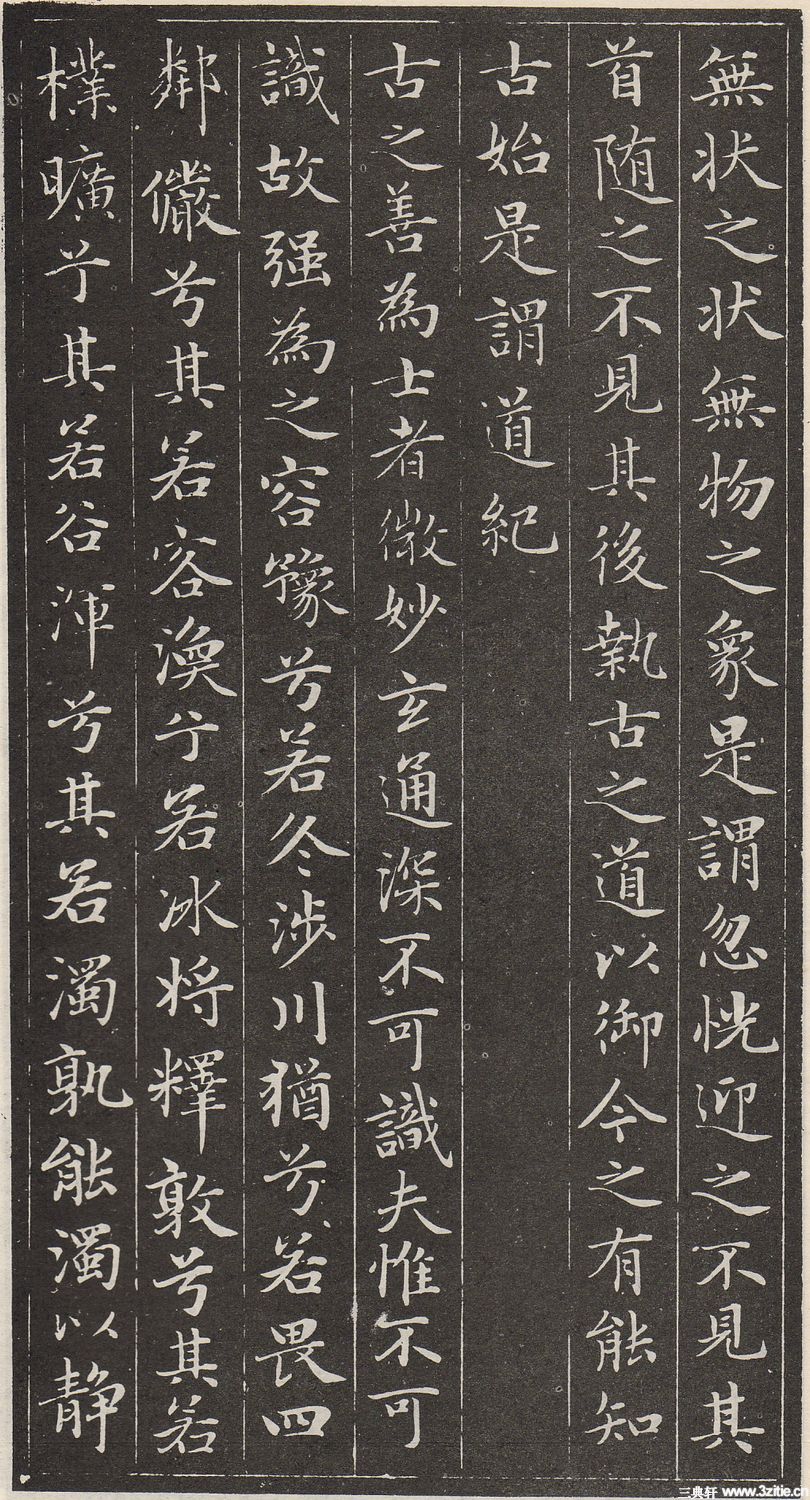 無状之状無物之象是謂忽恍迎之不見其
首随之不見其後執古之道以御今之有能知
古始是謂道紀
古之善為士者微妙玄通深不可識夫惟不可
識故强為之容豫兮若冬涉川猶兮若畏四
鄰儼兮其若容渙兮若冰将釋敦兮其若
樸曠兮其若谷渾兮其若濁孰能濁以静
三典轩 www.3zitie.cn